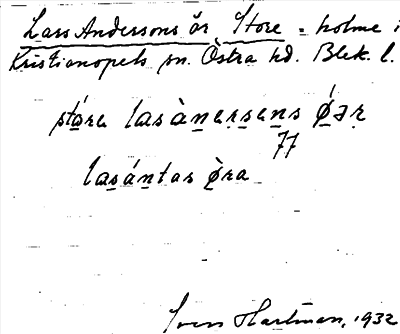 Lars Anderssons ör, Store - holme i
Kristianopels sn. Östra hd. Blek. l.
stóra lasànersens ǿər
77
lasántas òra
Sven Hartman, 1932